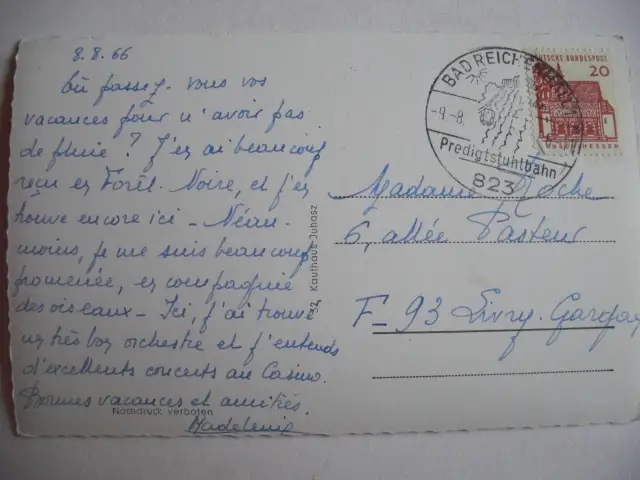 8.8.66
Où passez-vous vos
vacances pour n'avoir pas
de pluie? J'en ai beaucoup
reçu en Forêt-Noire, et j'en
trouve encore ici - Néan-
moins, je me suis beaucoup
promenée, en compagnie
des oiseaux - Ici, j'ai trouvé
un très bon orchestre et j'entends
d'excellents concerts au Casino.
Bonnes vacances et amitiés.
Nachdruck verboten
52 Kaufhaus Juhasz
BAD REICHENHALL
-9.-8.
Predigtstuhlbahn
823
DEUTSCHE BUNDESPOST
20
LORSCH HESSEN
Madame
6, allée Pasteur
F-93 Livry-Gargan